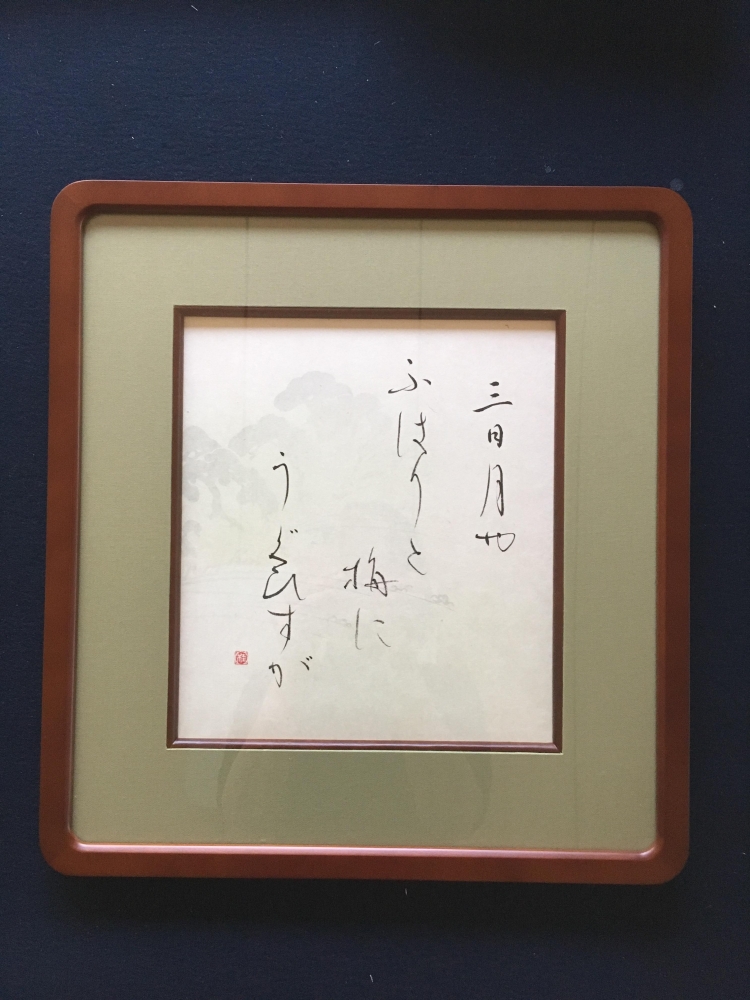 三日月や
ふはりと
梅に
うぐひすが